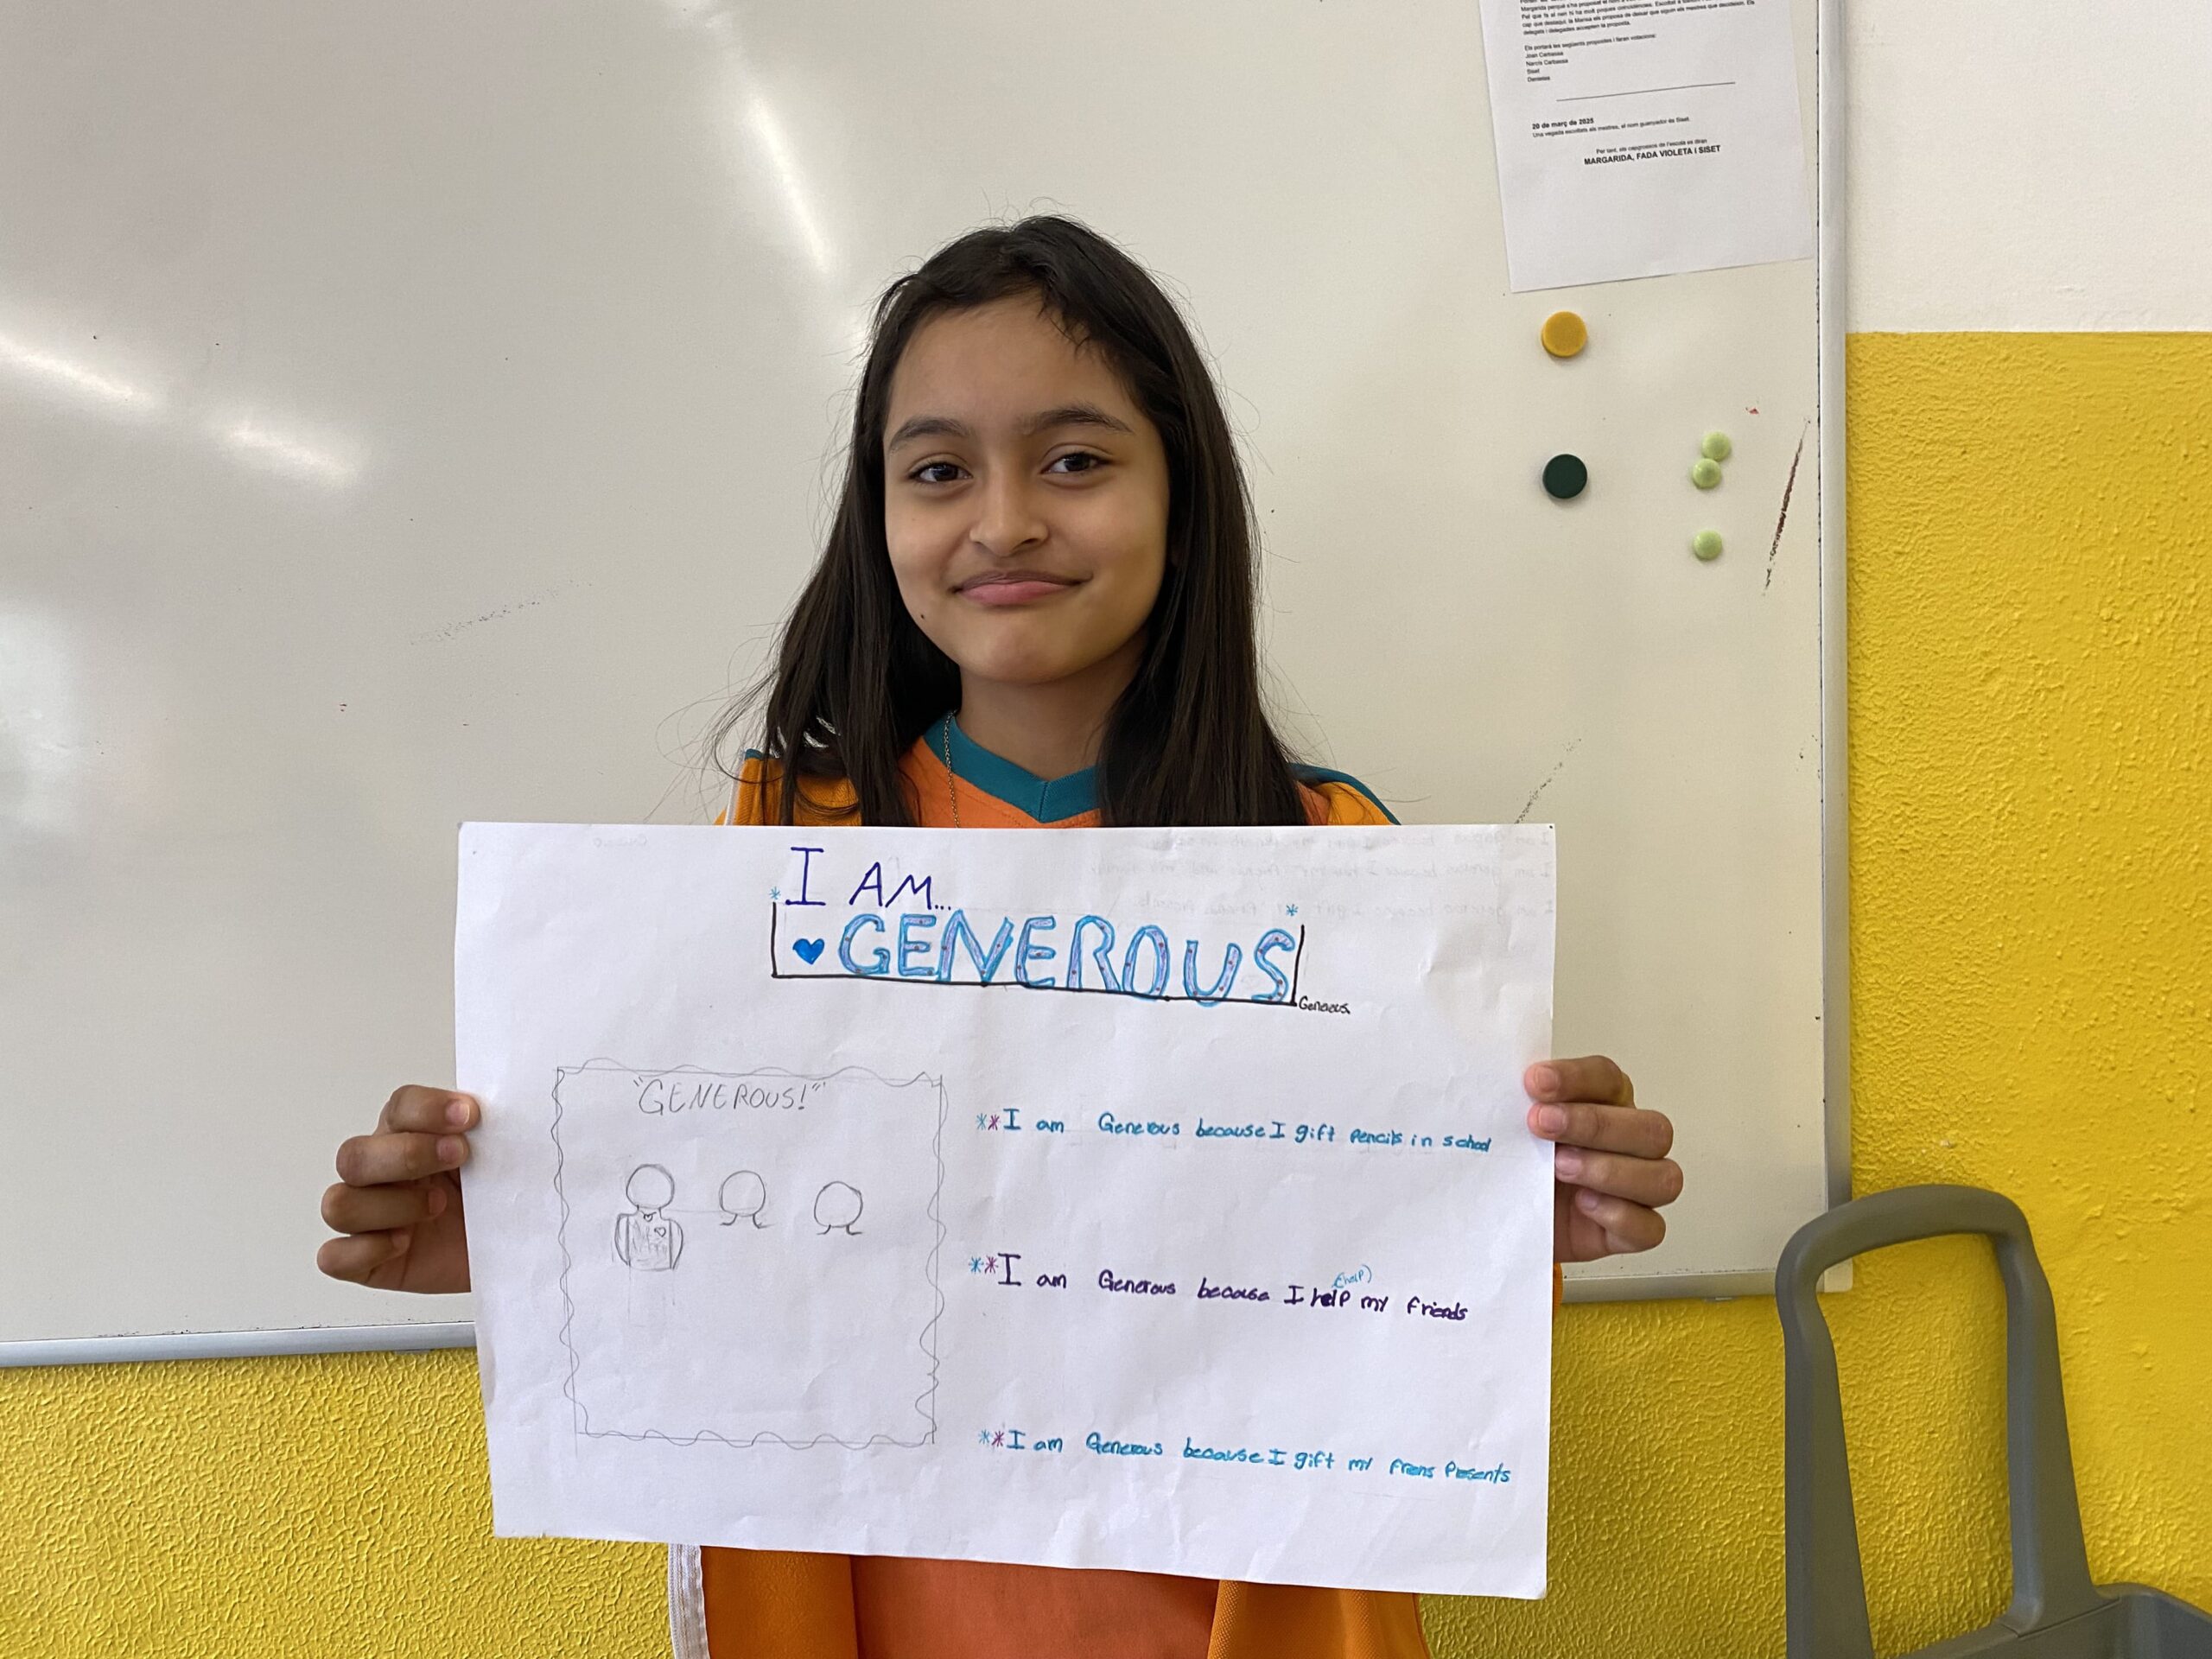 Margarida perquè s'ha proposat el nom
Pel que fa al nen hi ha molt poques coincidències. Escoltat
cap que destaqui, la Maresa els proposa de deixar que siguin els mestres que decideixin. Els
delegats i delegades accepten la proposta.
Els portarà les següents propostes i faran votacions:
Joan Carbassa
Narcís Carbassa
Siset
20 de març de 2025
Una vegada escoltats els mestres, el nom guanyador és Siset.
Per tant, els capgrossos de l'escola es diran
MARGARIDA, FADA VIOLETA I SISET
I AM...
GENEROUS
Generous
"GENEROUS!"
**I am Generous because I gift pencils in school
(help)
**I am Generous because I help my friends
**I am Generous because I gift my frens Presents